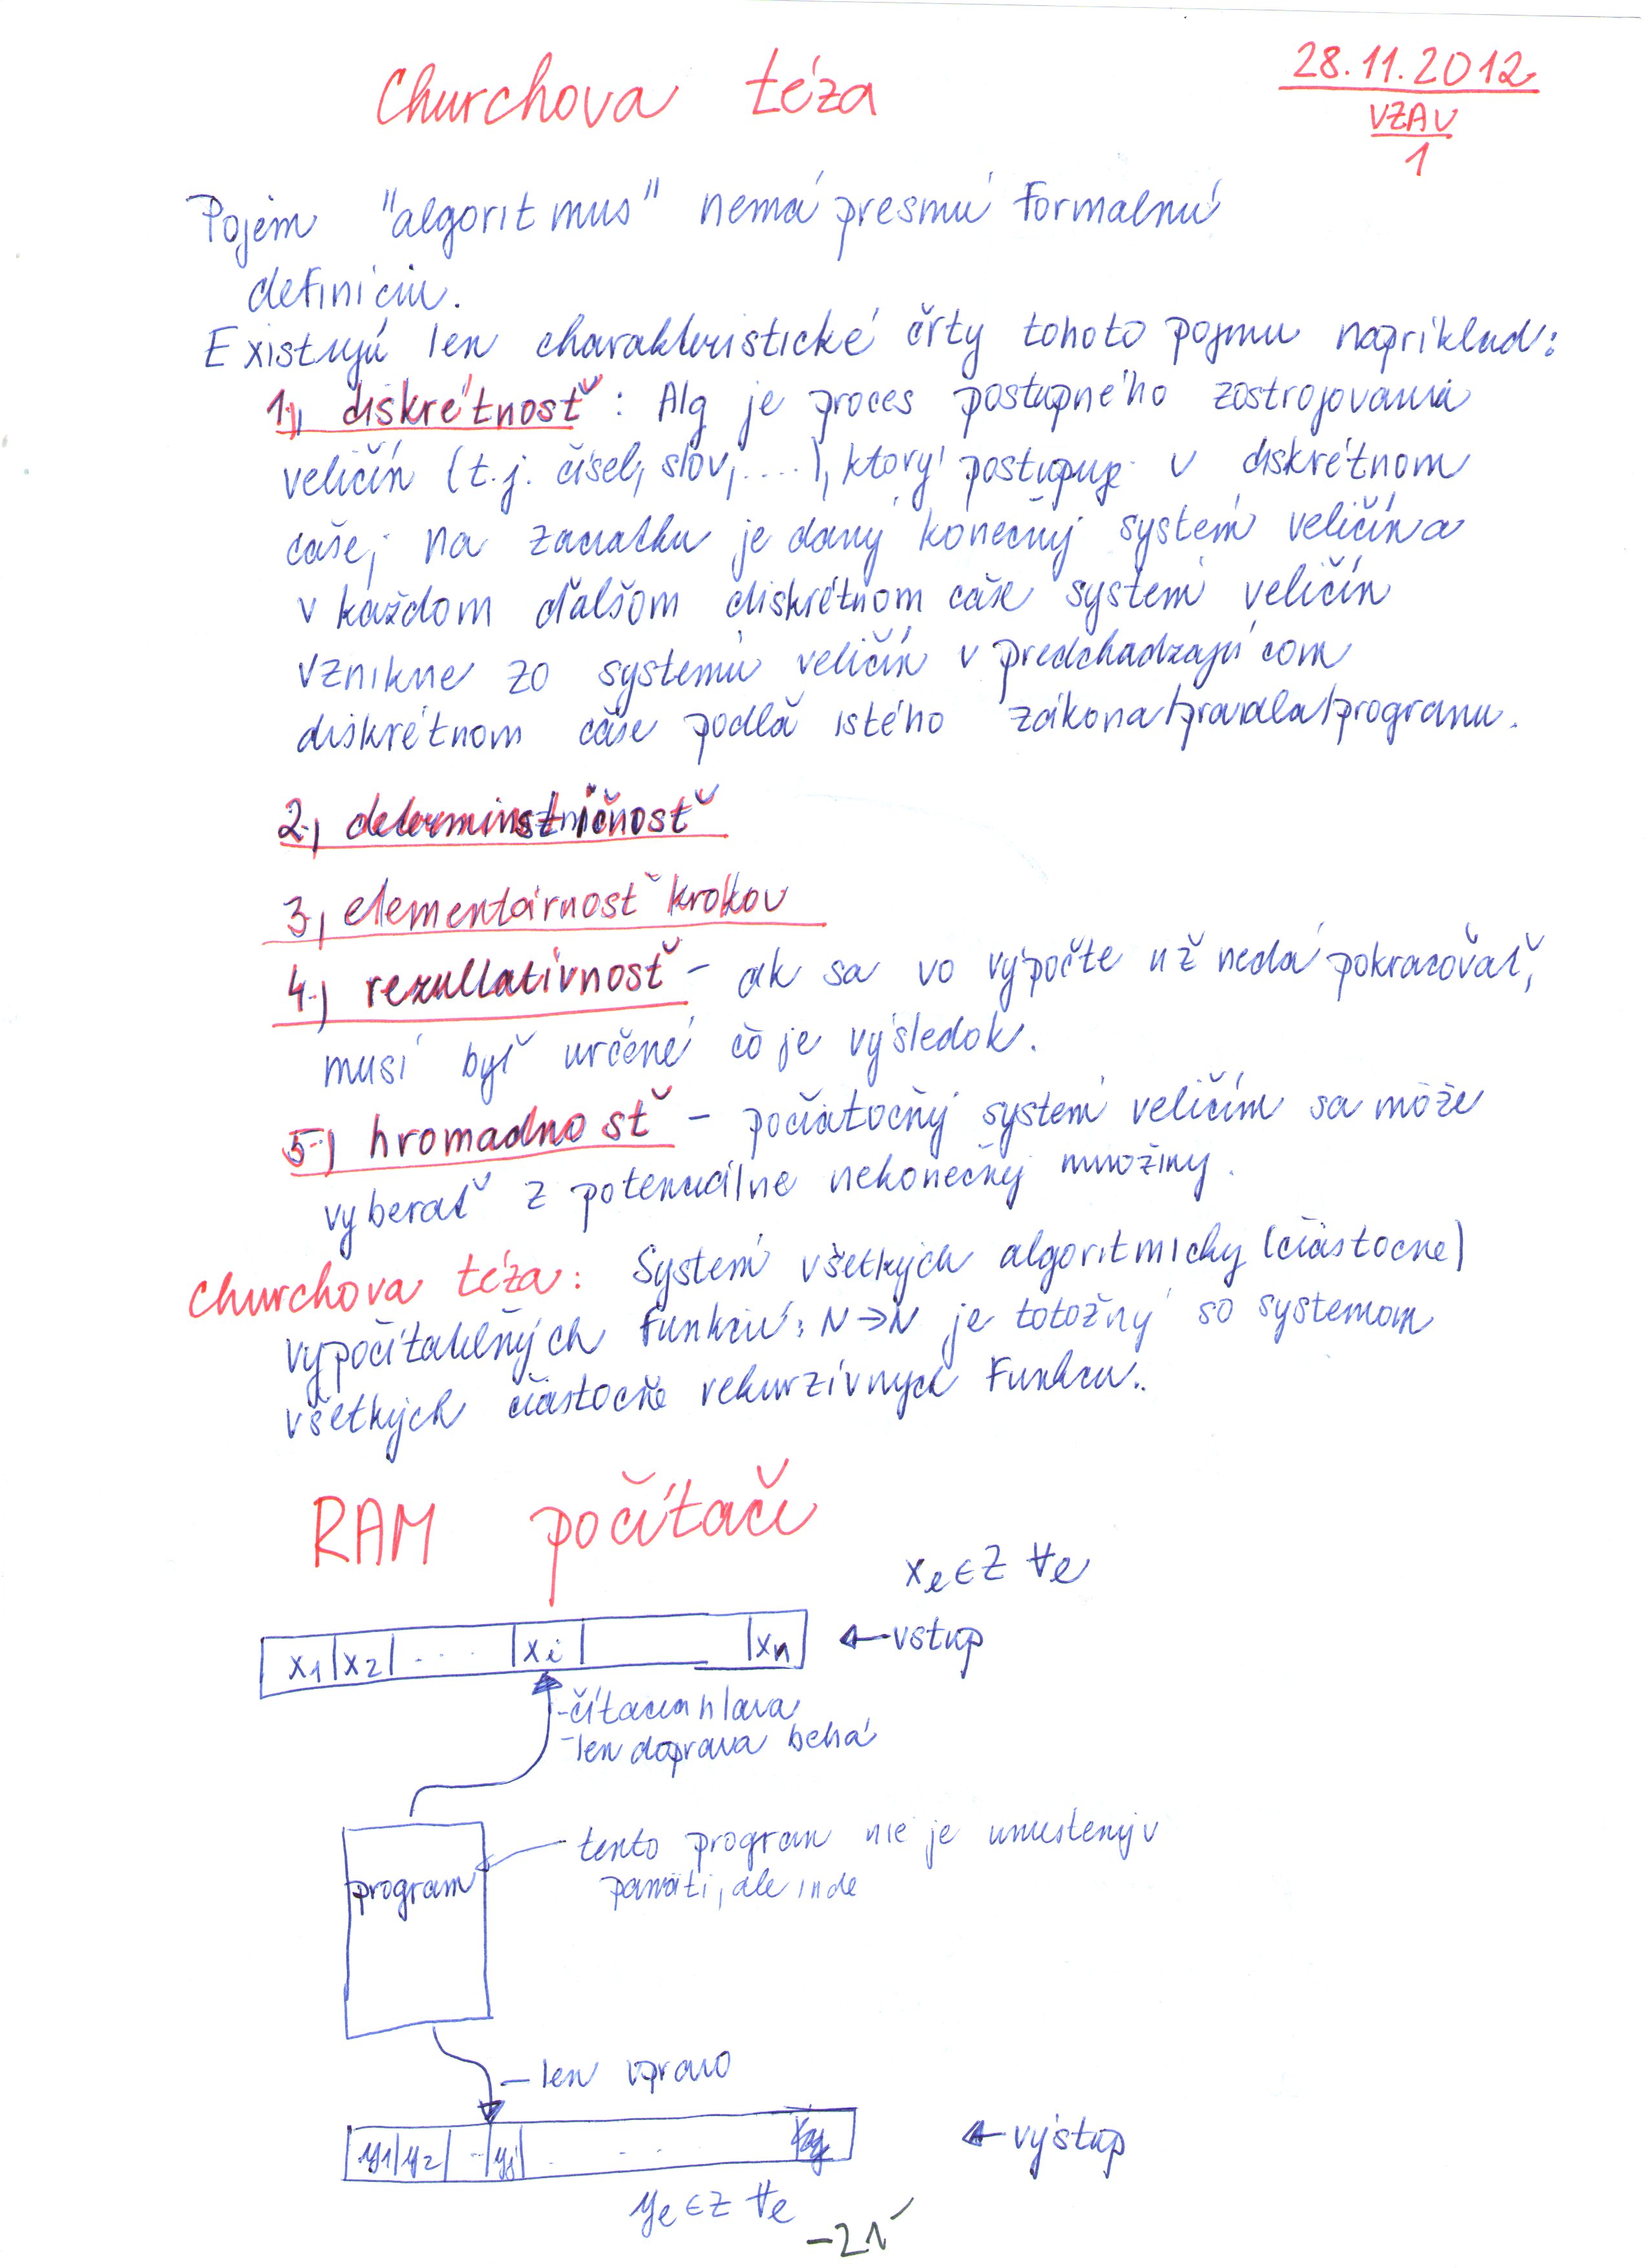 Churchova téza
28.11.2012
VZAV
1
Pojem "algoritmus" nemá presnú formalnú
definíciu.
Existujú len charakteristické črty tohoto pojmu napríklad:
1.) diskrétnosť : Alg je proces postupného zostrojovania
veličín (t.j. čísel, slov, ....), ktorý postupuje v diskrétnom
čase; na začiatku je daný konečný systém veličín a
v každom ďalšom diskrétnom čase systém veličín
vznikne zo systému veličín v predchadzajúcom
diskrétnom čase podľa istého zákona/pravidla/programu.
2.) determinstničnosť
3.) elementárnosť krokov
4.) rezultatívnosť – ak sa vo výpočte už nedá pokračovať,
musí byť určené čo je výsledok.
5.) hromadnosť – počiatočný systém veličín sa môže
vyberať z potenciálne nekonečnej množiny.
Churchova téza: Systém všetkých algoritmicky (čiastočne)
vypočítateľných funkcií: N→N je totožný so systémom
všetkých čiastočne rekurzívnych funkcií.
RAM počítače
xe∈Z ∀e
x1 x2 .... xi xn ← vstup
-čítacia hlava
-len doprava behá
tento program nie je umiestený v
pamäti, ale inde
program
– len vpravo
y1 y2 .. yj .. ← výstup
ye∈Z ∀e
-21